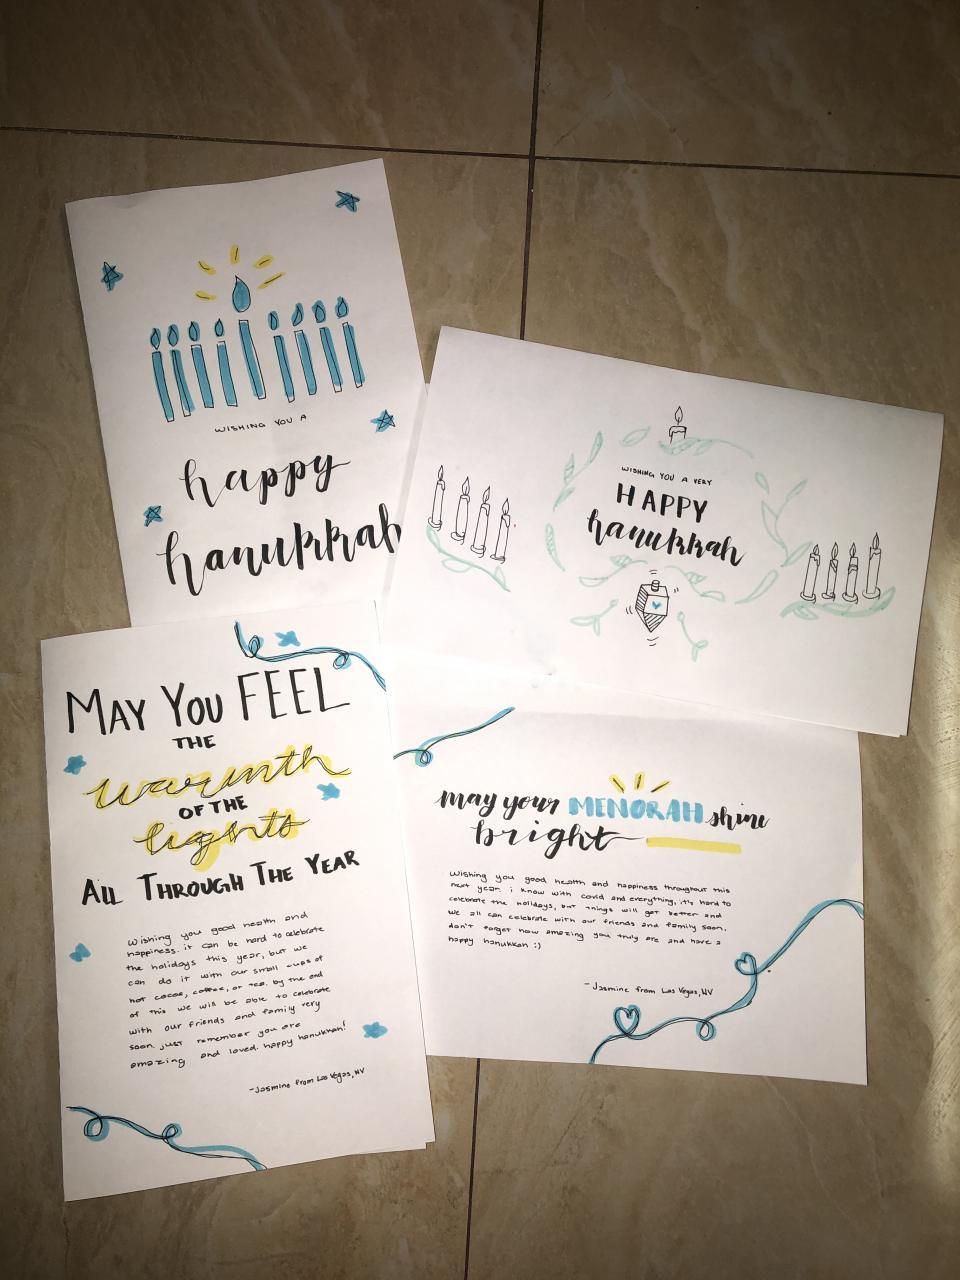 WISHING YOU A
happy
hanukkah
WISHING YOU A VERY
HAPPY
hanukkah
MAY YOU FEEL
THE
warmth
OF THE
lights
ALL THROUGH THE YEAR
wishing you good health and
happiness. it can be hard to celebrate
the holidays this year, but we
can do it with our small cups of
hot cocoa, coffee, or tea. by the end
of this we will be able to celebrate
with our friends and family very
soon. just remember you are
amazing and loved. happy hanukkah!
-Jasmine from Las Vegas, NV
may your MENORAH shine
bright
wishing you good health and happiness throughout this
next year. i know with covid and everything, it's hard to
celebrate the holidays, but things will get better and
we all can celebrate with our friends and family soon.
don't forget how amazing you truly are and have a
happy hanukkah :)
-Jasmine from Las Vegas, NV